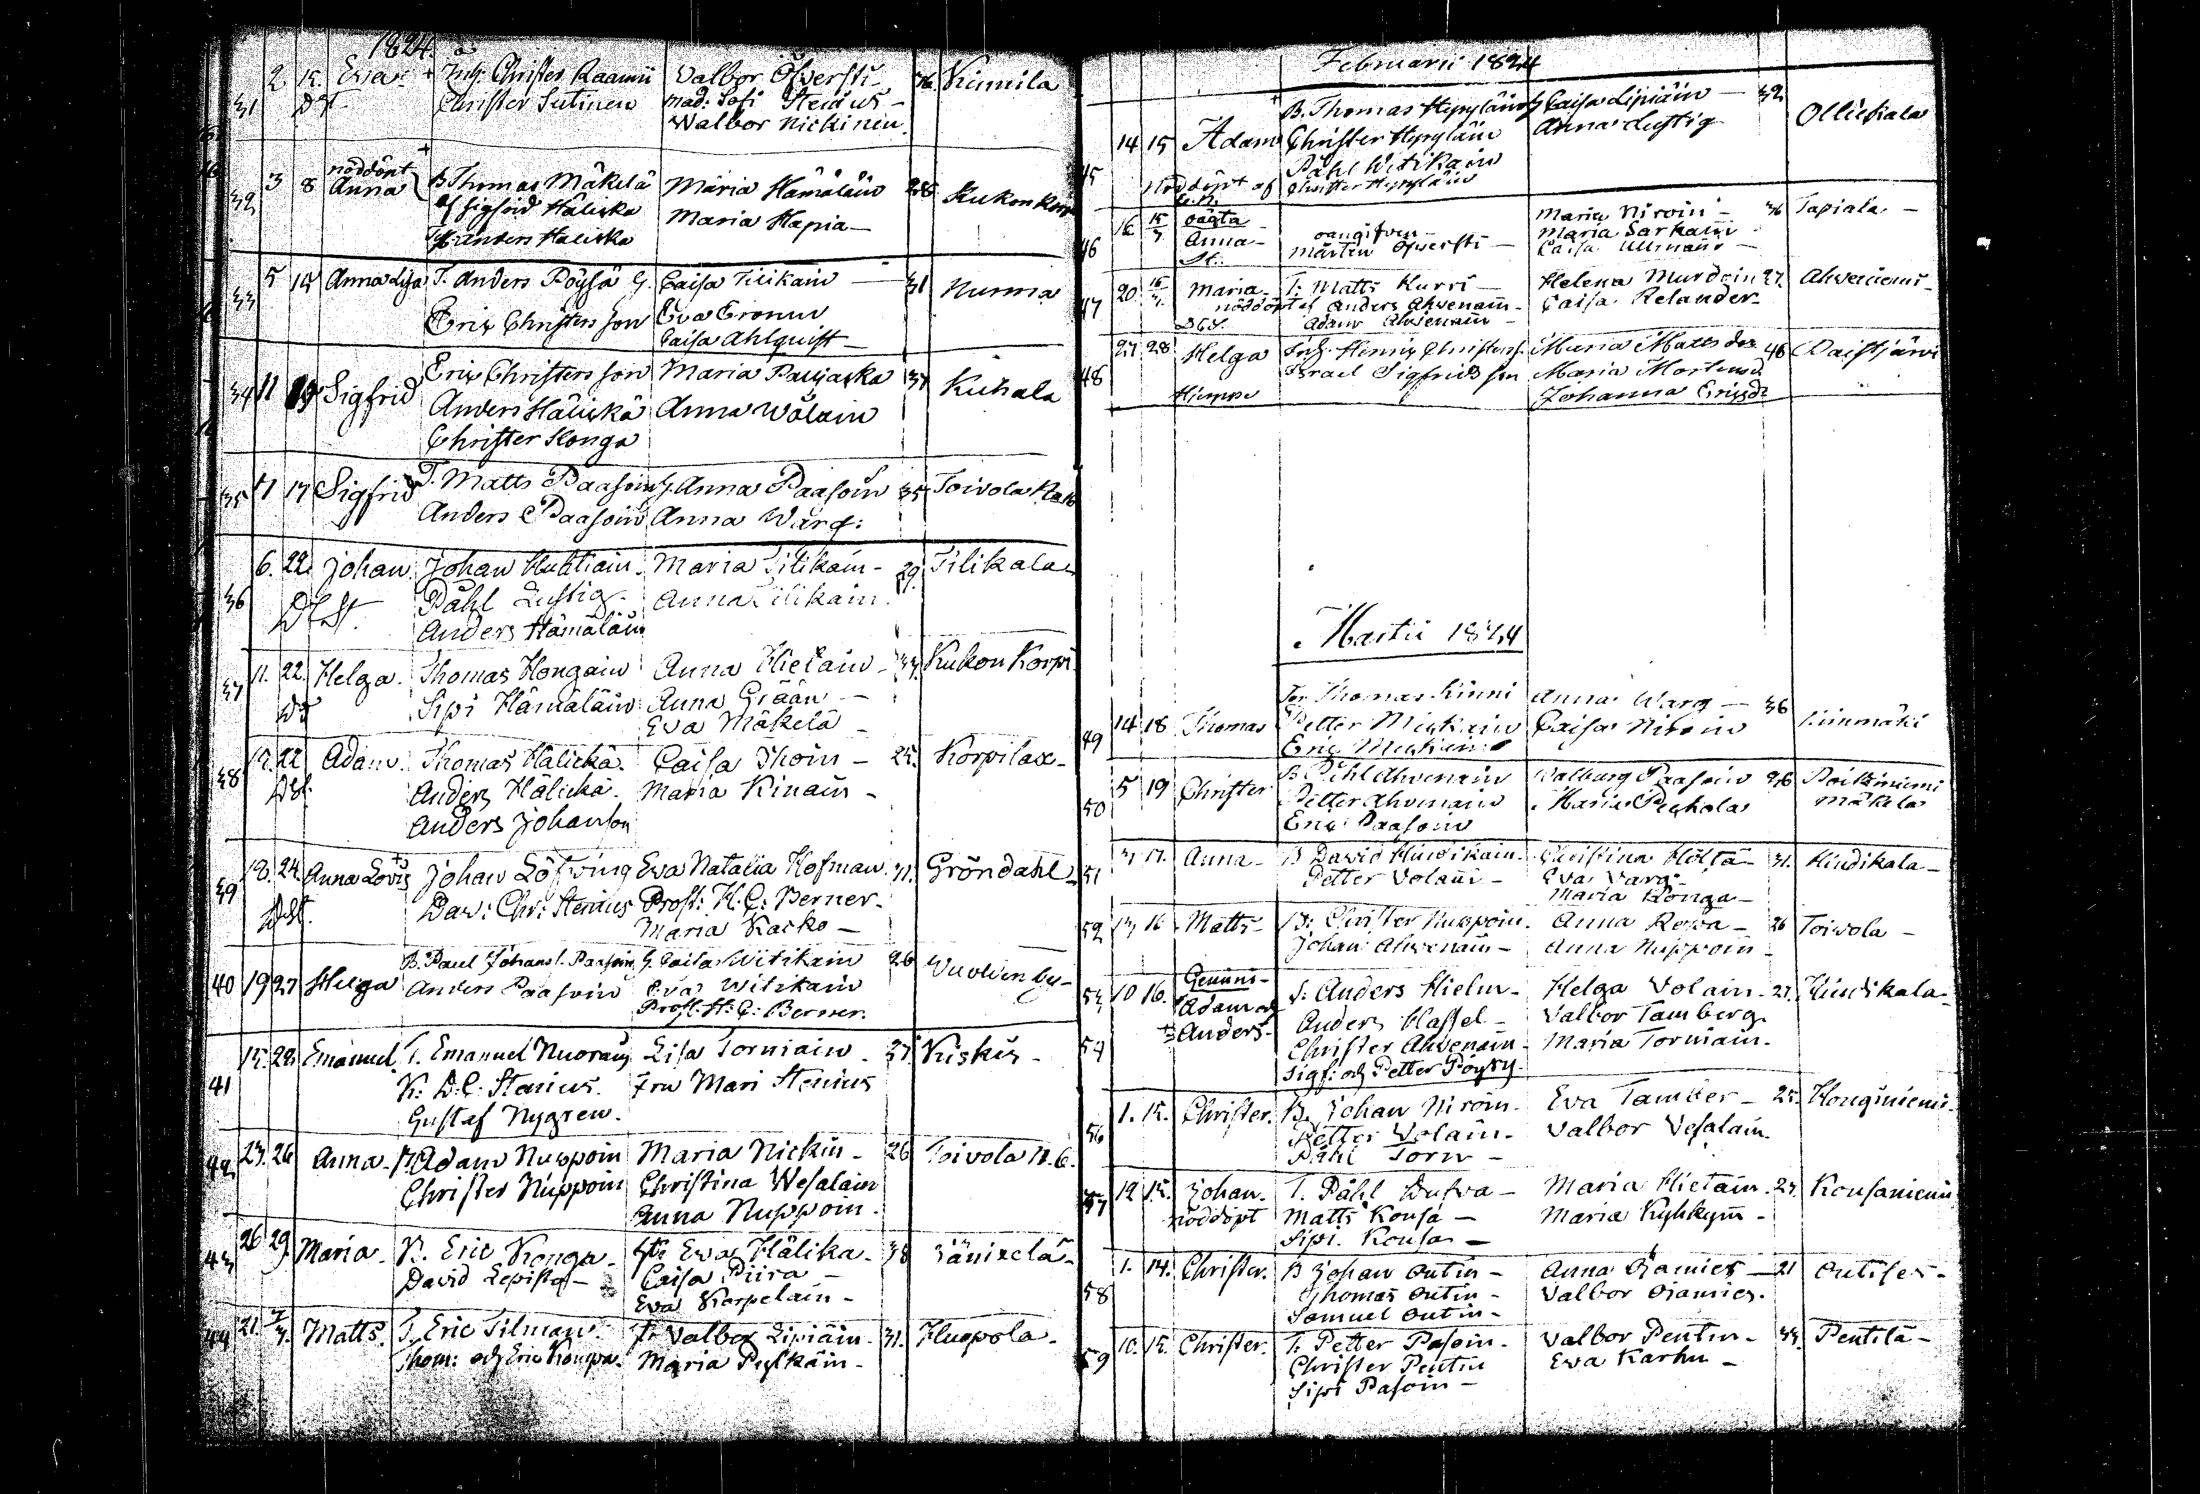 1824.
31 2 15. Eva Inh: Christer Raamii Valbor Öfversti 36 Kimila
Dst Christer Sutinen Mad: Sofi Stenius
Walbor Nickinen
32 3 8 nöddöpt Anna B. Thomas Mäkelä Maria Hämäläin 28 Kukonkorpi
af Sigfrid Häliskä Maria Hapia
Anders Haliska
33 5 15 Anna Lisa T. Anders Pöysä G. Caisa Tilikain 31 Nurma
Eric Christersson Eva Gronn
Caisa Ahlquist
34 11 Sigfrid Eric Christersson Maria Paujaska 37 Kuhala
Anders Häliskä Anna Wolain
Christer Konga
35 11 17 Sigfrid T. Matts Paasoin G. Anna Paasoin 35 Toivola
Anders Paasoin Anna Warg:
36 6. 22. Johan Johan Huhtiain Maria Tilikain 29. Tilikala
Påhl Lustig Anna Tilikain
Dst Anders Hämäläin
37 11. 22. Helga. Thomas Hongain Anna Hietain 33. Kukon Korpi
Dst Sipi Hämäläin Anna Grään
Eva Mäkelä
38 12. 22 Adam. Thomas Häliskä. Caisa Ihoin 25. Korpilax
Dst. Anders Häliskä. Maria Kinain
Anders Johansson
39 18. 24. Anna Lovis Johan Löfving Eva Natalia Hofman 31. Gröndahl
Dst. Dav: Chr: Stenius Prost: H. C: Berner.
Maria Kacko
40 19 27 Helga B. Paul Johanss. Paasoin G. Caisa Witikain 26 Vuolen by
Anders Paasoin Eva Witikain
Prost: H: C: Berner.
41 15. 28. Emanuel T. Emanuel Nuoraig Lisa Torniain 37 Kiskis
K: D. C. Stenius. Fru Mari Stenius
Gustaf Nygren.
42 23. 26 Anna. B. Adam Nuppoin Maria Nickin 26 Toivola N. 6.
Christer Nuppoin Christina Wesalain
Anna Nuppoin.
43 26 29 Maria. B. Eric Konga. Eva Hälika. 38 Jänixelä
David Lepistö Caisa Piira
Eva Karpelain
44 21. Matts. T. Eric Tilman Valbor Lipiäin. 31. Huopola
Thom: och Eric Kompa. Maria Pylkäin
Februarii 1824
45 14 15 Adam B. Thomas Hyyryläin G Caisa Lipiäin 32 Ollickala
Christer Hyyryläin Anna Lustig
Påhl Witikain
Nöddöpt af Christer Hyyryläin
46 16 15/3 oägta Maria Niroin 36 Tapiala
Anna oangifven Maria Sarkain
St. Mårten Öfversti Caisa Ullmain
47 20 16/3. Maria T. Matts Kurri Helena Murdoin 27. Ahveniemi
nöddöpt af Anders Ahvenain Caisa Relander
Adam Ahvenain
48 27 28 Helga Inh. Henric Christerss. Maria Mattsdr 46 Vaistjärvi
Israel Sigfridsson Maria Mortensd
Johanna Ericsd
Martii 1824
49 14 18 Thomas Thomas Kinni Anna Warg 36 Linnmäki
Petter Mickain Caisa Niroin
Eric Mickain
50 5 19 Christer B Påhl Ahvenain Walborg Paasoin 26 Poitziniemi
Petter Ahvenain Maria Pyykala Mäkelä
Eric Paasoin
51 3 17. Anna B David Hindikain. Christina Höltä 31. Hindikala
Petter Volain Eva Varg
Maria Konga
52 13 16 Matts B: Christer Nuppoin. Anna Ropa 26 Toivola
Johan Ahvenain Anna Nuppoin
53 10 16. Gemini T. Anders Hielm Helga Volain 27. Hindikala
Adam och Anders Hassel Valbor Tamberg
54 Anders Christer Ahvenain Maria Torniain.
Sigf: och Petter Pöysy.
56 1. 15. Christer. B. Johan Niroin. Eva Tamber 25. Honginiemi.
Petter Volain. Valbor Vesalain.
Påhl Torn
57 12 15. Johan. T. Påhl Dufva Maria Hietain. 23. Kousaniemi
nöddöpt Matts Kousa Maria Kyhkyin
Sipi. Kousa
58 1. 14. Christer. B Johan Outin Anna Ojamies 21 Outiset
Thomas Outin Valbor Ojamies.
Samuel Outin
59 10. 15. Christer. T. Petter Pasoin. Valbor Pentin 33. Pentilä
Christer Pentin Eva Karhu
Sipi Pasoin